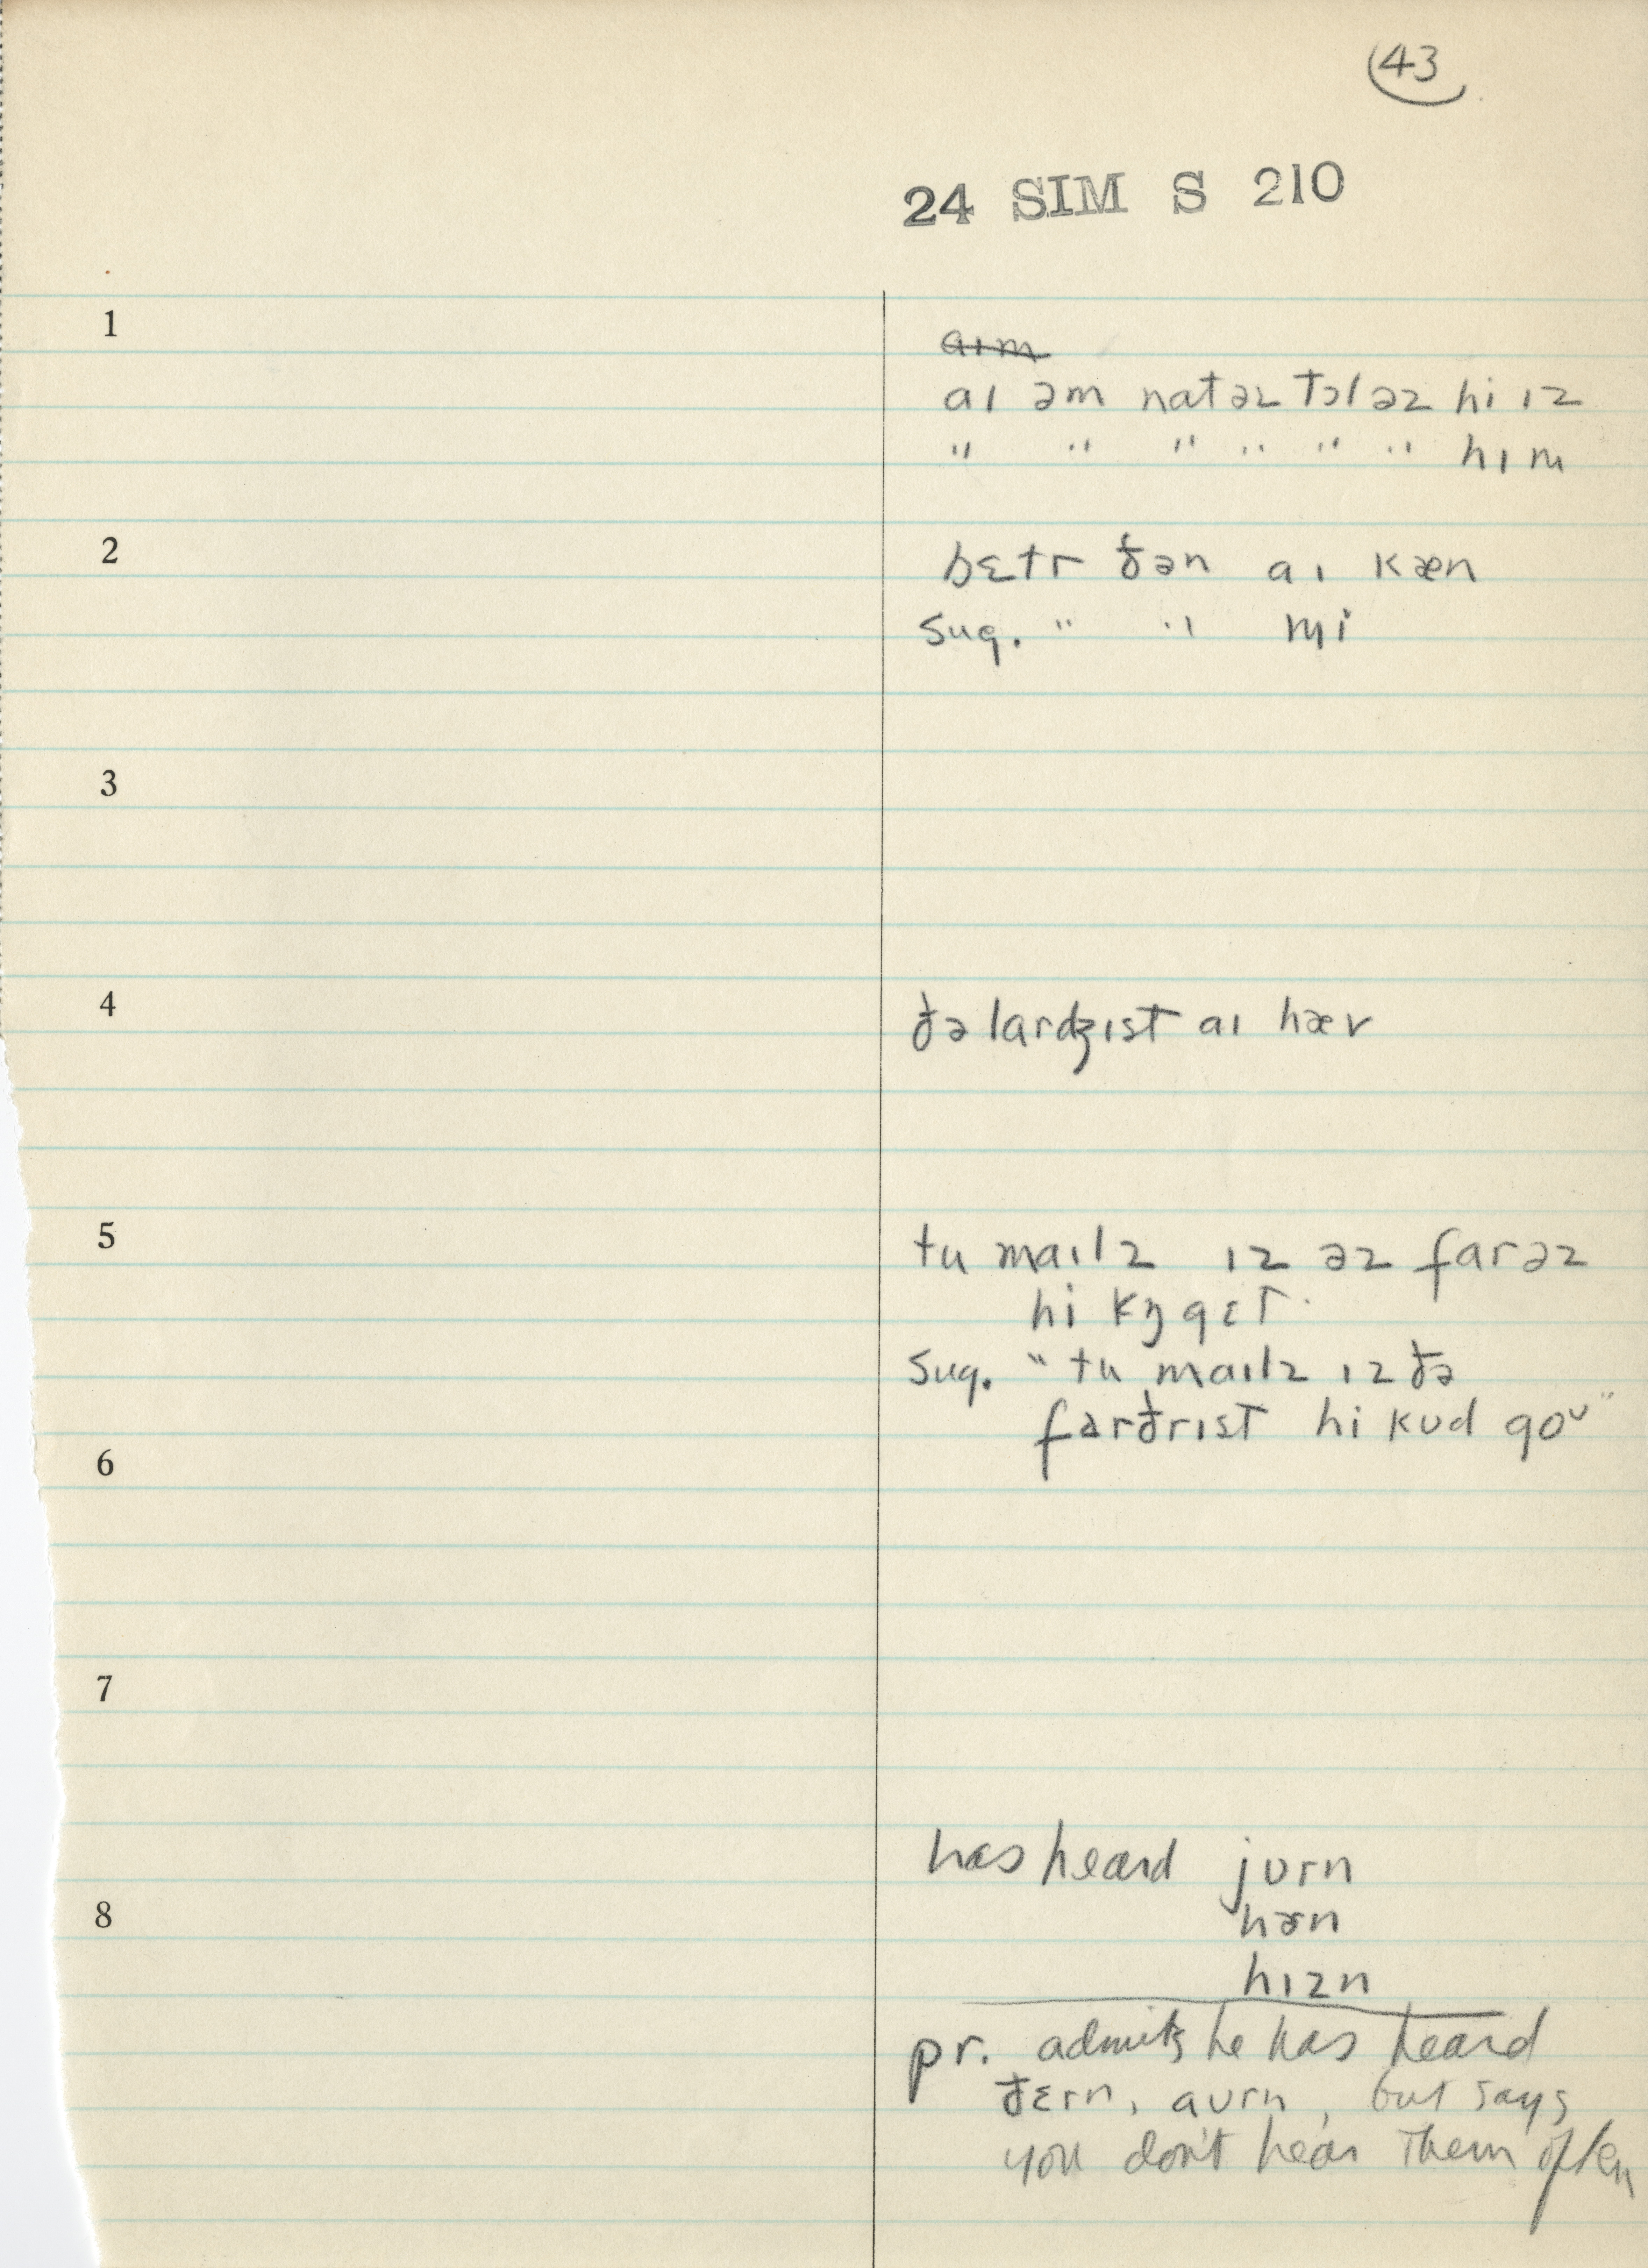 43
24 SIM S 210
1
aɪm
aɪ əm natəz tɔləz hi ɪz
" " " " " " hɪm
2
bɛtr ðən aɪ kæn
sug. " " mi
3
4
ðə lardʒɪst aɪ hæv
5
tu maɪlz ɪz əz farəz
hi kŋ gɛt.
sug. "tu maɪlz ɪz ðə
farðrɪst hi kʊd goʊ"
6
7
has heard jʊrn
8
hɚn
hɪzn
pr. admits he has heard
ðɛrn, aʊrn, but says
you don't hear them often